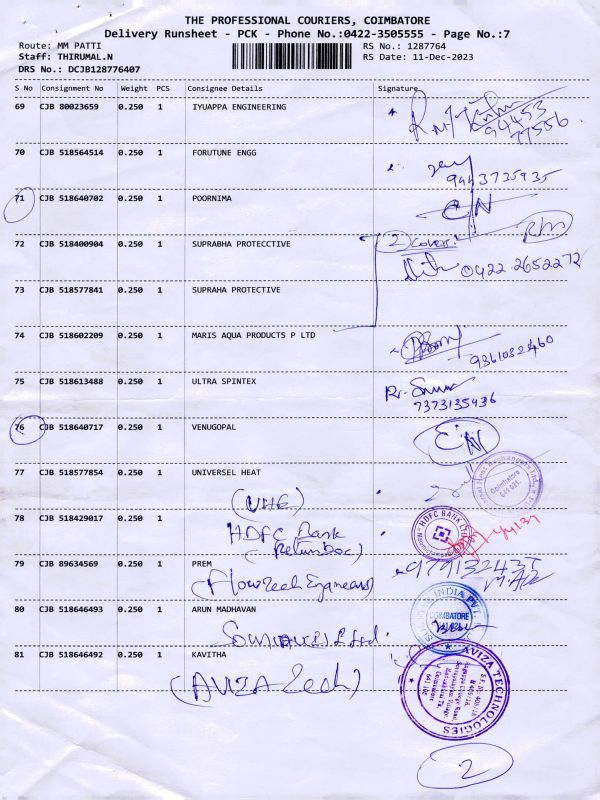 THE PROFESSIONAL COURIERS, COIMBATORE
Delivery Runsheet - PCK - Phone No.:0422-3505555 - Page No.:7
Route: MM PATTI RS No.: 1287764
Staff: THIRUMAL.N RS Date: 11-Dec-2023
DRS No.: DCJB128776407
S No Consignment No Weight PCS Consignee Details Signature
69 CJB 80023659 0.250 1 IYUAPPA ENGINEERING
94453
77556
70 CJB 518564514 0.250 1 FORUTUNE ENGG
9443735935
71 CJB 518640702 0.250 1 POORNIMA
C/N
RM
72 CJB 518400904 0.250 1 SUPRABHA PROTECCTIVE
2 cover
0422 2652272
73 CJB 518577841 0.250 1 SUPRAHA PROTECTIVE
74 CJB 518602209 0.250 1 MARIS AQUA PRODUCTS P LTD
9361032460
75 CJB 518613488 0.250 1 ULTRA SPINTEX
7373135936
76 CJB 518640717 0.250 1 VENUGOPAL
C/N
77 CJB 518577854 0.250 1 UNIVERSEL HEAT
(UHE)
Coimbatore
78 CJB 518429017 0.250 1
HDFC Bank
(Return Doc)
HDFC BANK LTD
79 CJB 89634569 0.250 1 PREM
(Flowtech Engineers)
9791324351
80 CJB 518646493 0.250 1 ARUN MADHAVAN
INDIA PVT.
COIMBATORE
81 CJB 518646492 0.250 1 KAVITHA
(AVIZA Tech)
AVIZA TECHNOLOGIES
Coimbatore
2